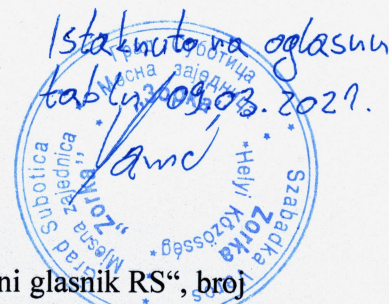 Istaknuto na oglasnu
tablu 09.03.2021.
Град Суботица
Месна заједница
„Зорка“
Grad Subotica
Mjesna zajednica
„Zorka“
Szabadka
Helyi Közösség
Zorka
ni glasnik RS“, broj